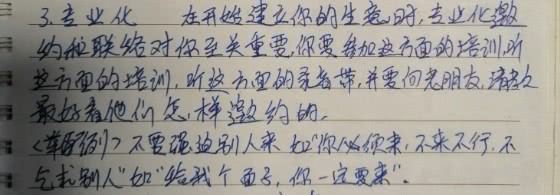 3.专业化 在开始建立你的生意时,专业化邀
约和联络对你至关重要,你要参加这方面的培训,听
这方面的培训,听这方面的录音带,并要向老朋友请教
最好看他们怎样邀约的。
不要强迫别人来 如"你必须来,不来不行,不
乞求别人"如"给我个面子,你一定要来".